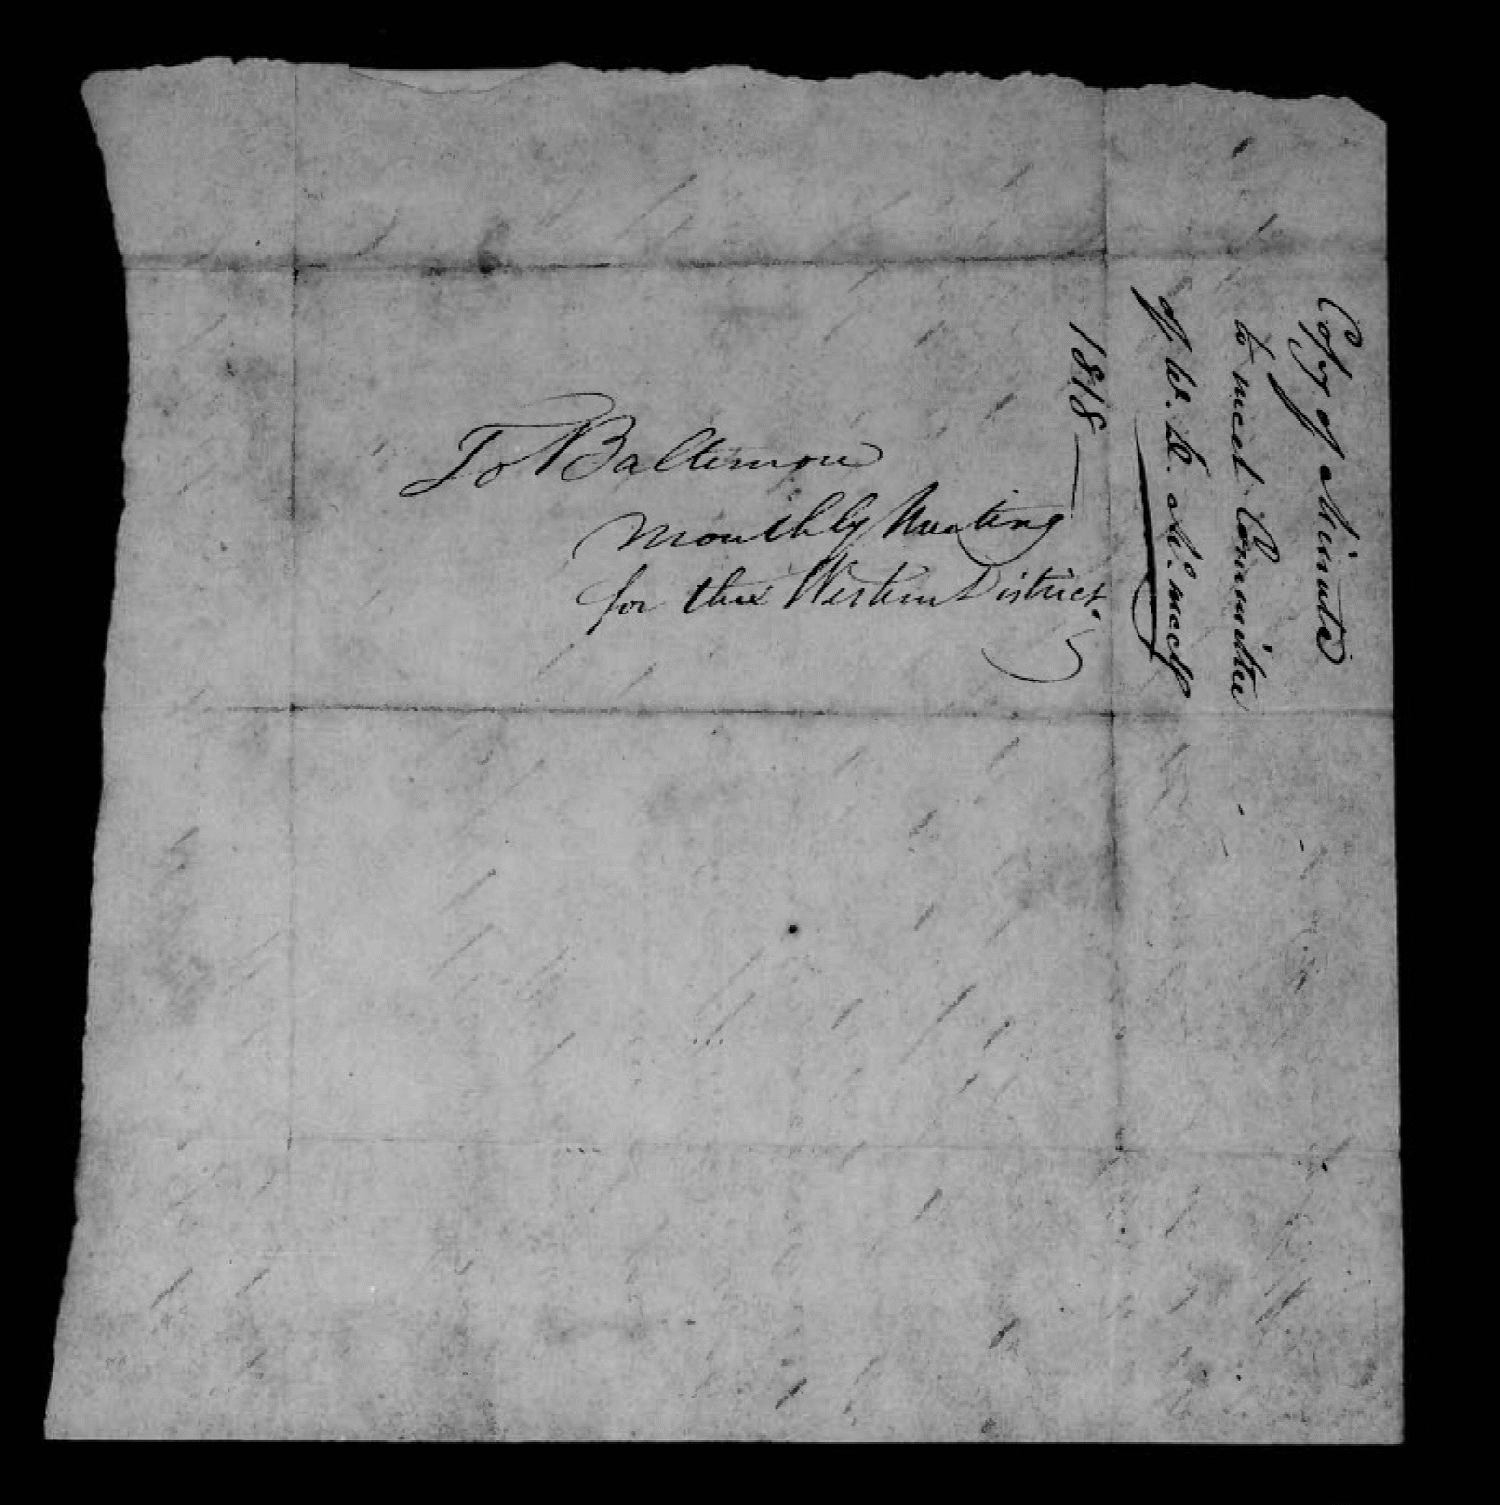 To Baltimore
Monthly Meeting
for the Western District.
Copy of Minute
to meet Committee
of W. D. Mo. meets
1818